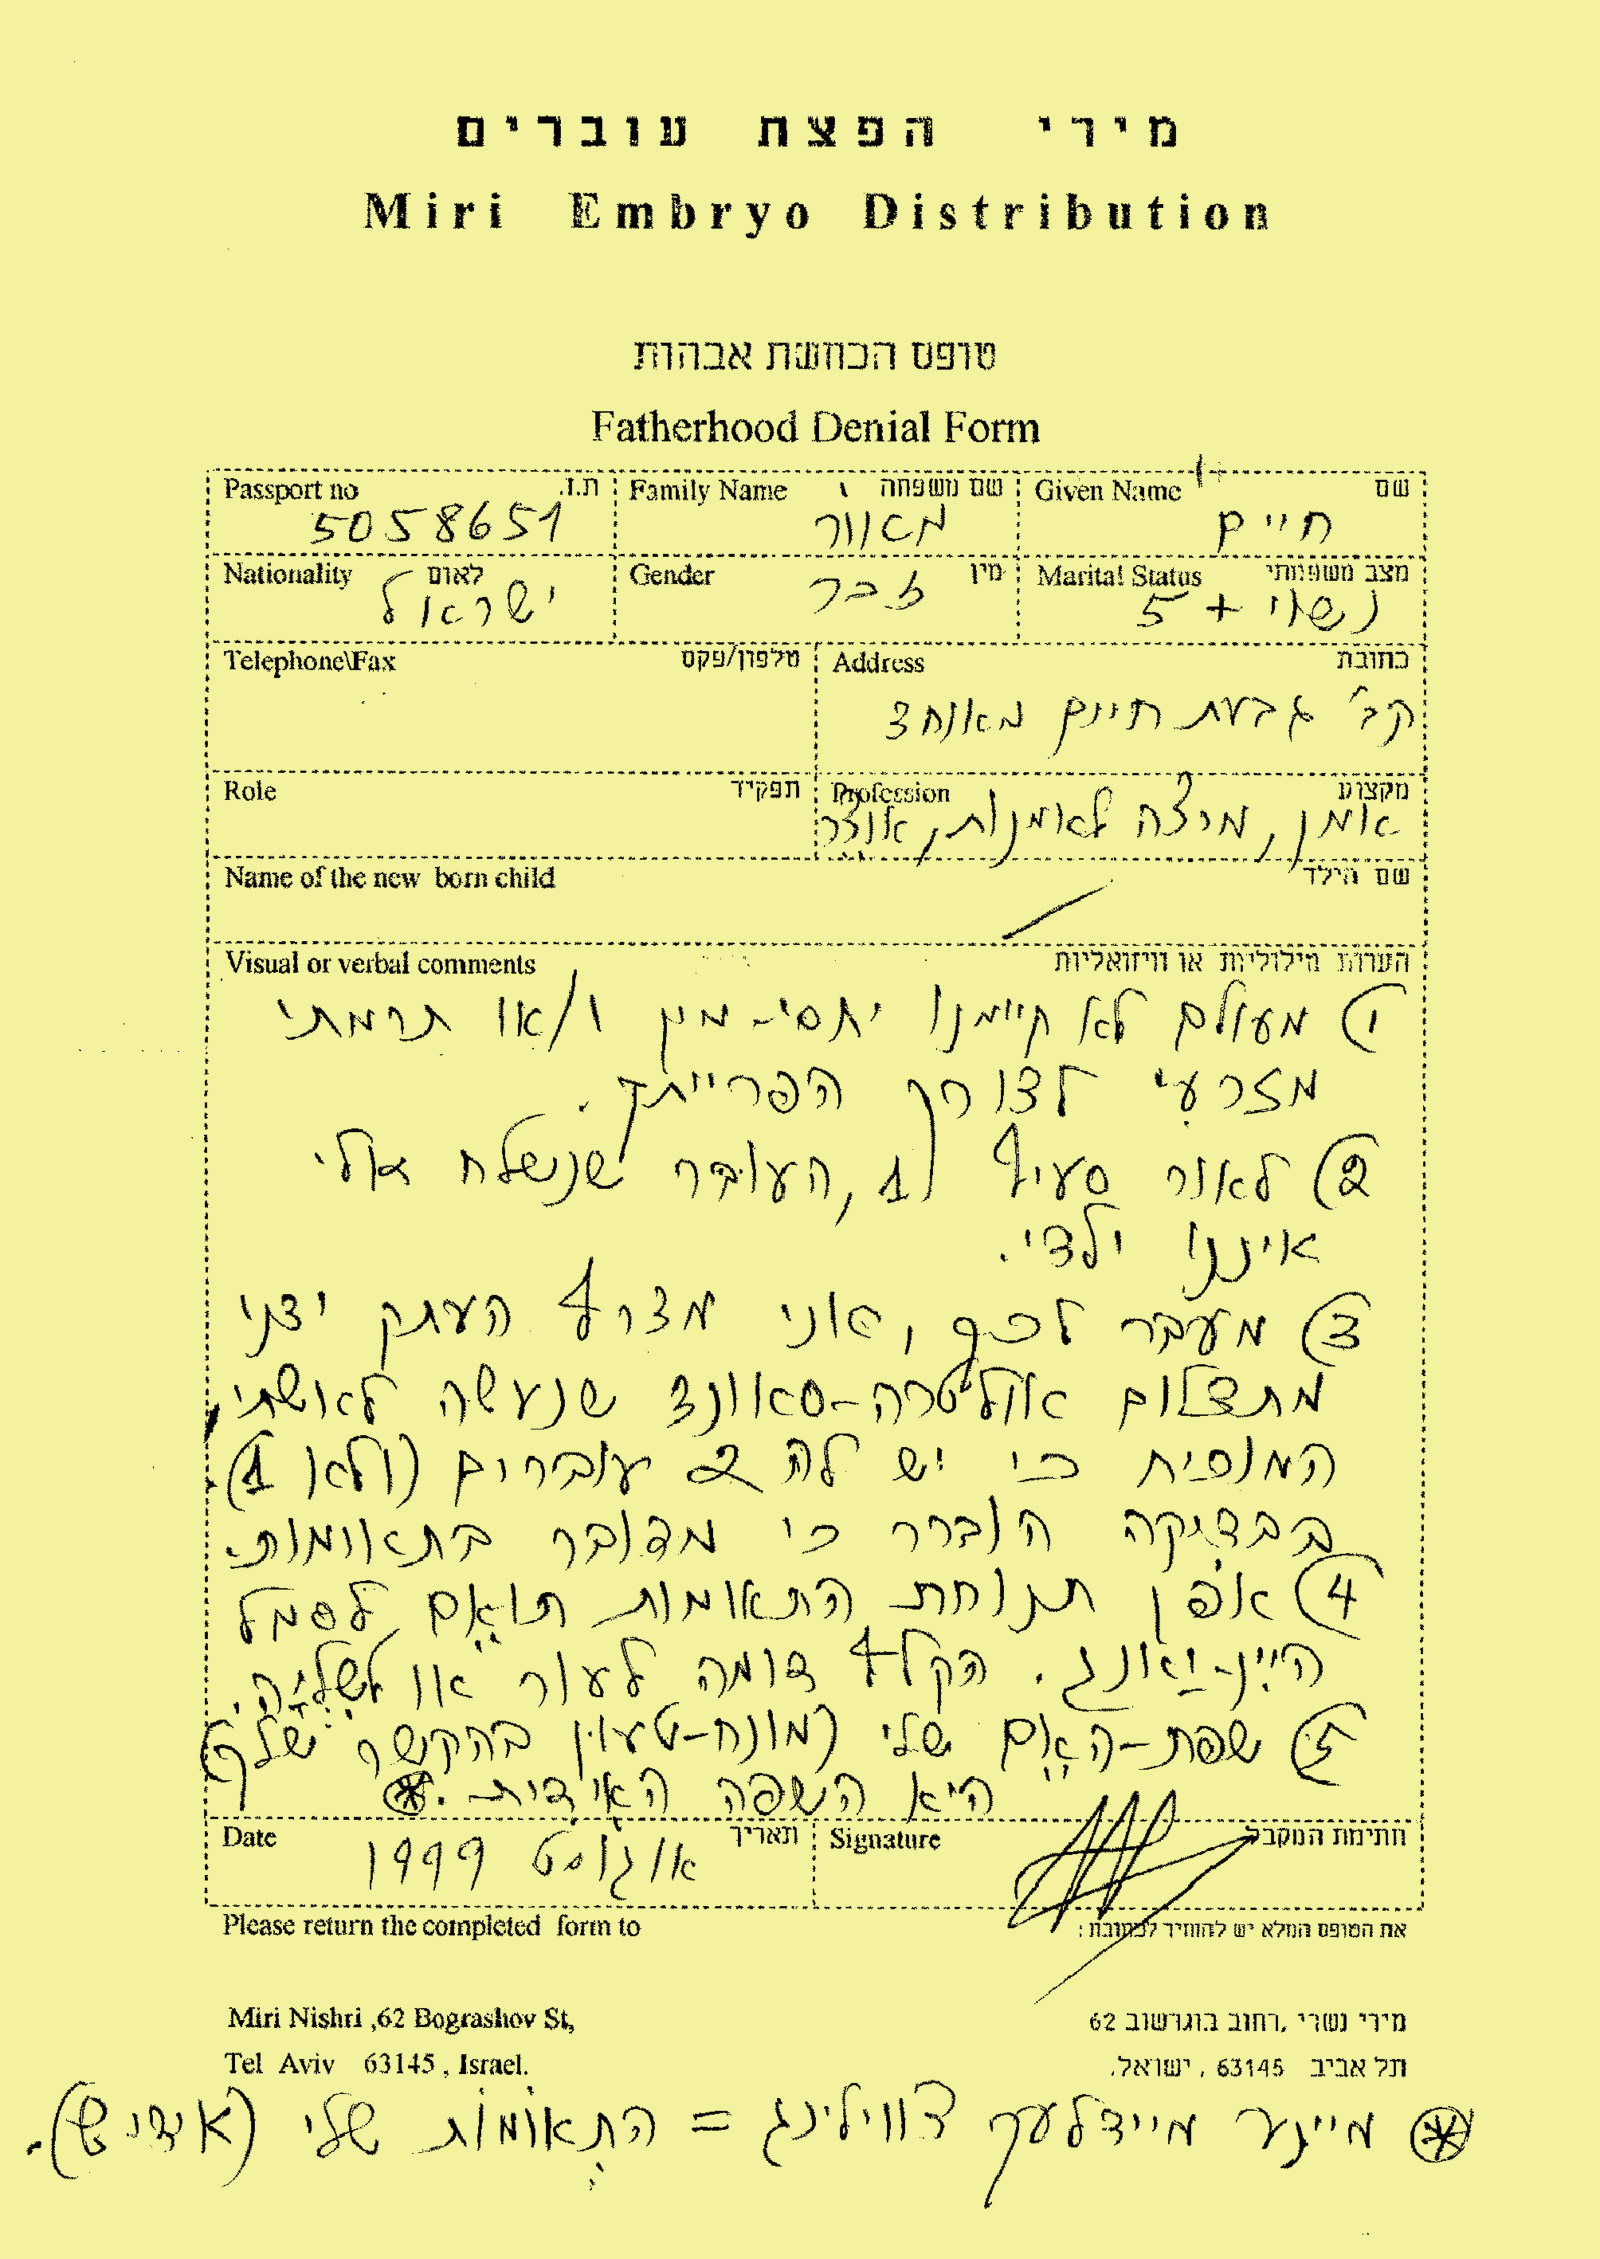 מירי הפצת עוברים
Miri Embryo Distribution
טופס הכחשת אבהות
Fatherhood Denial Form
Passport no ת.ז. Family Name שם משפחה Given Name שם
5058651 מאור חיים
Nationality לאום Gender מין Marital Status מצב משפחתי
ישראל זכר נשוי + 5
Telephone\Fax טלפון/פקס Address כתובת
קב' גבעת חיים מאוחד
Role תפקיד Profession מקצוע
אומן, מרצה לאומנות, אוצר
Name of the new born child שם הילד
Visual or verbal comments הערות מילוליות או וויזואליות
1) מעולם לא קיימנו יחסי-מין ו/או תרמתי
מזרעי לצורך הפרוייקט.
2) לאור סעיף 1, העובר שנשלח אלי
איננו ילדי.
3) מעבר לכך, אני מצרף העתק יצני
מתצלום אולטרה-סאונד שנעשה לאשתי,
המוכיח כי יש לה 2 עוברים (ולא 1).
בבדיקה הוברר כי מדובר בתאומות.
4) אופן תנוחת התאומות תואם לסמל
היין-יאנג. הקלף דומה לעור או לשליה.
5) שפת-האם שלי (מונח-טעון בהקשר שלך)
היא השפה האידית. *
Date תאריך Signature חתימת המקבל
אוגוסט 1999
Please return the completed form to את הטופס המלא יש להחזיר לכתובת :
Miri Nishri ,62 Bograshov St, מירי נשרי ,רחוב בוגרשוב 62
Tel Aviv 63145 , Israel. תל אביב 63145 , ישראל.
* מיינע מיידלעך צווילינג = התאומות שלי (אידיש).